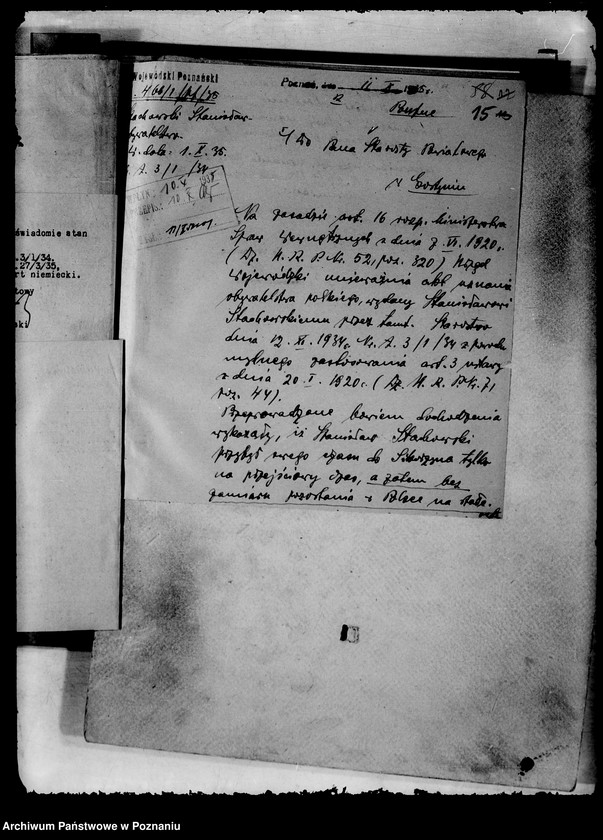 Wojewódzki Poznański
Stachowski Stanisław
obywatelstwo
1. X. 35.
3/1/34
10. X. 1935
Poznań, dnia 11 X 1935 r.
Poufne
15
Do Pana Starosty Powiatowego
w Gostyniu
Na zasadzie art. 16 rozp. Ministerstwa
Spraw Wewnętrznych z dnia 7. VI. 1920 r.
(Dz. U. R. P. Nr. 52, poz. 320) Urząd
Wojewódzki unieważnia akt uznania
obywatelstwa polskiego, wydany Stanisławowi
Stachowskiemu przez tamt. Starostwo
dnia 12. XI. 1934 r. Nr. A. 3/1/34 z powodu
mylnego zastosowania art. 3 ustawy
z dnia 20. I. 1920 r. (Dz. U. R. P. Nr. 7,
poz. 44).
Przeprowadzone bowiem dochodzenia
wykazały, iż Stanisław Stachowski
przybył swego czasu do tylko
na przejściowy czas, a zatem bez
zamiaru pozostania w Polsce na stałe.
świadomie stan
3/1/34.
27/3/35,
rt niemiecki.
Archiwum Państwowe w Poznaniu